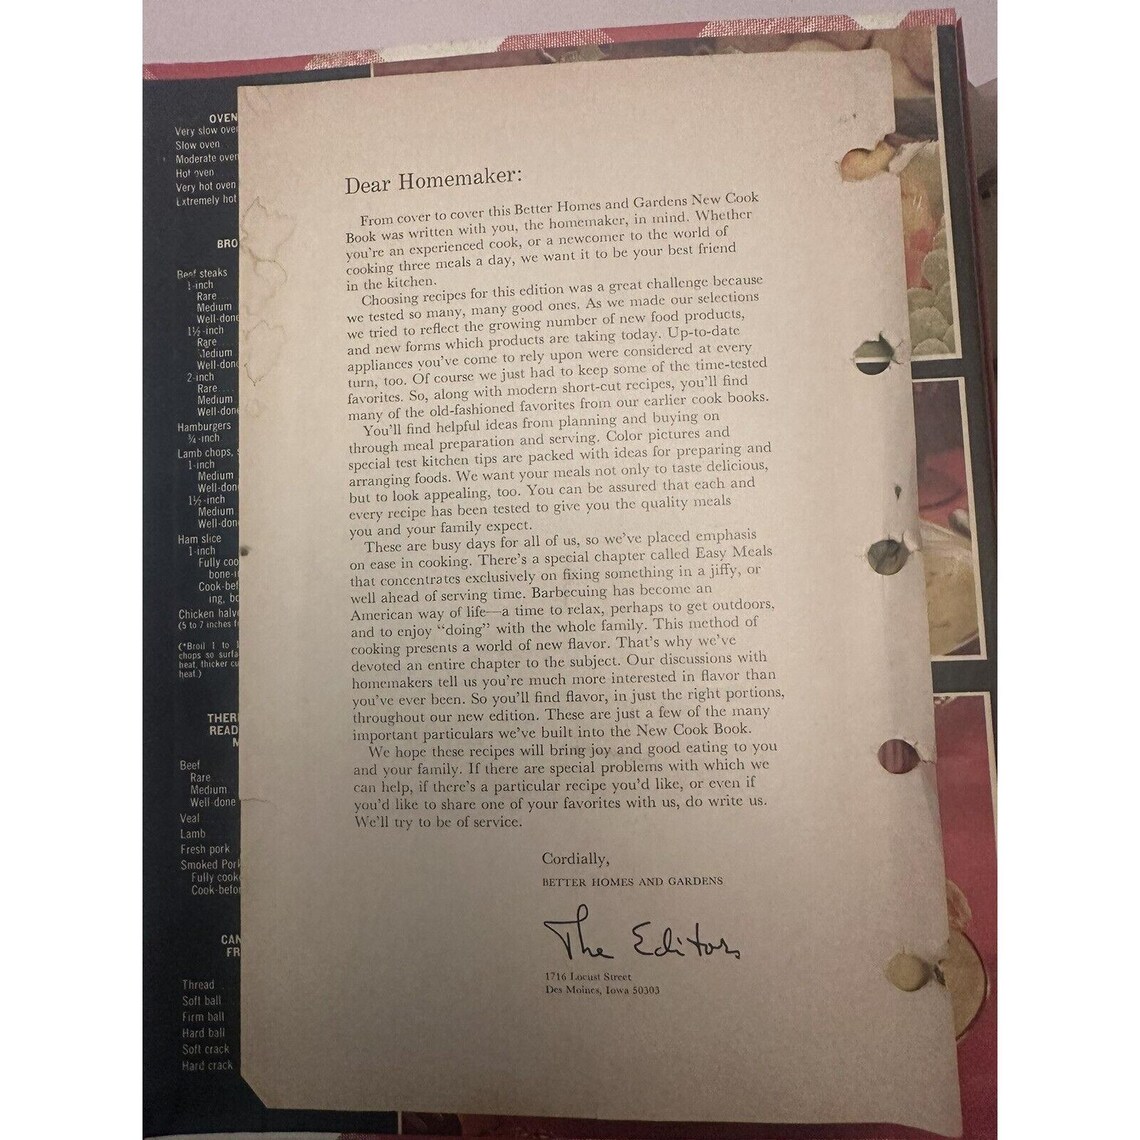 OVEN
Very slow oven
Slow oven
Moderate oven
Hot oven
Very hot oven
Extremely hot
BRO
Beef steaks
1-inch
Rare
Medium
Well-done
1½-inch
Rare
Medium
Well-done
2-inch
Rare
Medium
Well-done
Hamburgers
¾-inch
Lamb chops, s
1-inch
Medium
Well-don
1½-inch
Medium
Well-don
Ham slice
1-inch
Fully coo
bone-i
Cook-bef
ing, bo
Chicken halv
(5 to 7 inches f
(*Broil 1 to 1
chops so surfa
heat, thicker cu
heat.)
THER
READ
M
Beef
Rare
Medium
Well-done
Veal
Lamb
Fresh pork
Smoked Pork
Fully cook
Cook-befor
CAN
FR
Thread
Soft ball
Firm ball
Hard ball
Soft crack
Hard crack
Dear Homemaker:
From cover to cover this Better Homes and Gardens New Cook
Book was written with you, the homemaker, in mind. Whether
you're an experienced cook, or a newcomer to the world of
cooking three meals a day, we want it to be your best friend
in the kitchen.
Choosing recipes for this edition was a great challenge because
we tested so many, many good ones. As we made our selections
we tried to reflect the growing number of new food products,
and new forms which products are taking today. Up-to-date
appliances you've come to rely upon were considered at every
turn, too. Of course we just had to keep some of the time-tested
favorites. So, along with modern short-cut recipes, you'll find
many of the old-fashioned favorites from our earlier cook books.
You'll find helpful ideas from planning and buying on
through meal preparation and serving. Color pictures and
special test kitchen tips are packed with ideas for preparing and
arranging foods. We want your meals not only to taste delicious,
but to look appealing, too. You can be assured that each and
every recipe has been tested to give you the quality meals
you and your family expect.
These are busy days for all of us, so we've placed emphasis
on ease in cooking. There's a special chapter called Easy Meals
that concentrates exclusively on fixing something in a jiffy, or
well ahead of serving time. Barbecuing has become an
American way of life—a time to relax, perhaps to get outdoors,
and to enjoy "doing" with the whole family. This method of
cooking presents a world of new flavor. That's why we've
devoted an entire chapter to the subject. Our discussions with
homemakers tell us you're much more interested in flavor than
you've ever been. So you'll find flavor, in just the right portions,
throughout our new edition. These are just a few of the many
important particulars we've built into the New Cook Book.
We hope these recipes will bring joy and good eating to you
and your family. If there are special problems with which we
can help, if there's a particular recipe you'd like, or even if
you'd like to share one of your favorites with us, do write us.
We'll try to be of service.
Cordially,
BETTER HOMES AND GARDENS
The Editors
1716 Locust Street
Des Moines, Iowa 50303